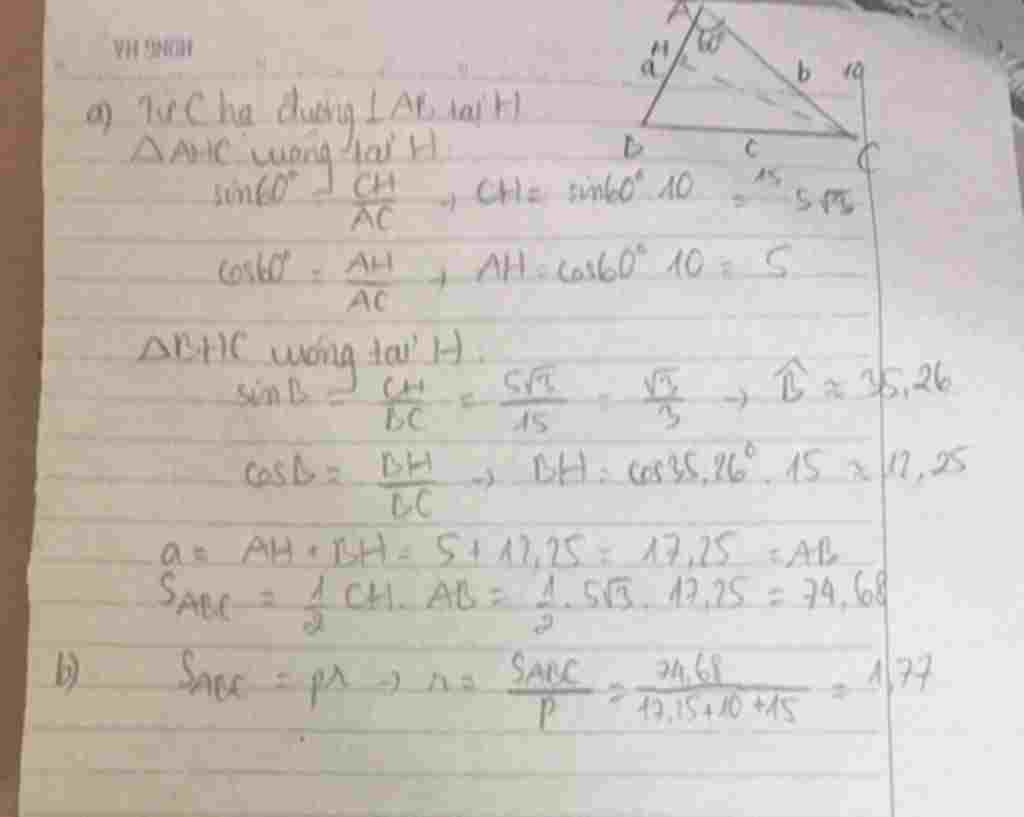 A
60°
H
a
b 10
B
c
C
15
a) Từ C hạ đường ⊥ AB tại H
ΔAHC vuông tại H
sin60° = CH/AC → CH = sin60°.10 = 5√3
cos60° = AH/AC → AH = cos60° 10 = 5
ΔBHC vuông tại H.
sinB = CH/BC = 5√3/15 = √3/3 → B̂ ≈ 35,26
cosB = BH/BC → BH = cos35,26°.15 ≈ 12,25
a = AH + BH = 5 + 12,25 = 17,25 = AB
S_ABC = 1/2 CH. AB = 1/2 . 5√3 . 17,25 = 74,68
b) S_ABC = pr → r = S_ABC/p = 74,68/(17,25+10+15) = 1,77